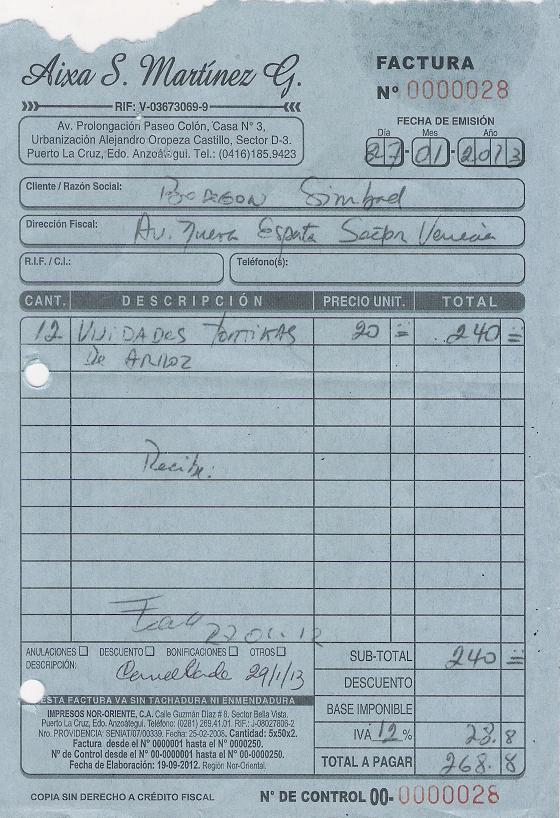 Aixa S. Martínez G.
RIF: V-03673069-9
Av. Prolongación Paseo Colón, Casa N° 3,
Urbanización Alejandro Oropeza Castillo, Sector D-3.
Puerto La Cruz, Edo. Anzoátegui. Tel.: (0416)185.9423
FACTURA
N° 0000028
FECHA DE EMISIÓN
Día Mes Año
27-01-2013
Cliente / Razón Social: Bodegon Simbad
Dirección Fiscal: Av. Nueva Esparta Sector Venecia
R.I.F. / C.I.: Teléfono(s):
CANT. DESCRIPCIÓN PRECIO UNIT. TOTAL
12 Unidades Tortikas 20 = 240 =
De Arroz
Recibe:
22 01. 12
ANULACIONES DESCUENTO BONIFICACIONES OTROS
DESCRIPCIÓN: 29/1/13
SUB-TOTAL 240 =
DESCUENTO
BASE IMPONIBLE
IVA 12 % 28. 8
TOTAL A PAGAR 268. 8
ESTA FACTURA VA SIN TACHADURA NI ENMENDADURA
IMPRESOS NOR-ORIENTE, C.A. Calle Guzmán Díaz # 6. Sector Bella Vista.
Puerto La Cruz, Edo. Anzoátegui. Teléfono: (0281) 269.41.01. RIF.: J-08027806-2
Nro. PROVIDENCIA: SENIAT/07/00339. Fecha: 25-02-2008. Cantidad: 5x50x2.
Factura desde el N° 0000001 hasta el N° 0000250.
N° de Control desde el N° 00-0000001 hasta el N° 00-0000250.
Fecha de Elaboración: 19-09-2012. Región Nor-Oriental.
COPIA SIN DERECHO A CRÉDITO FISCAL
N° DE CONTROL 00- 0000028